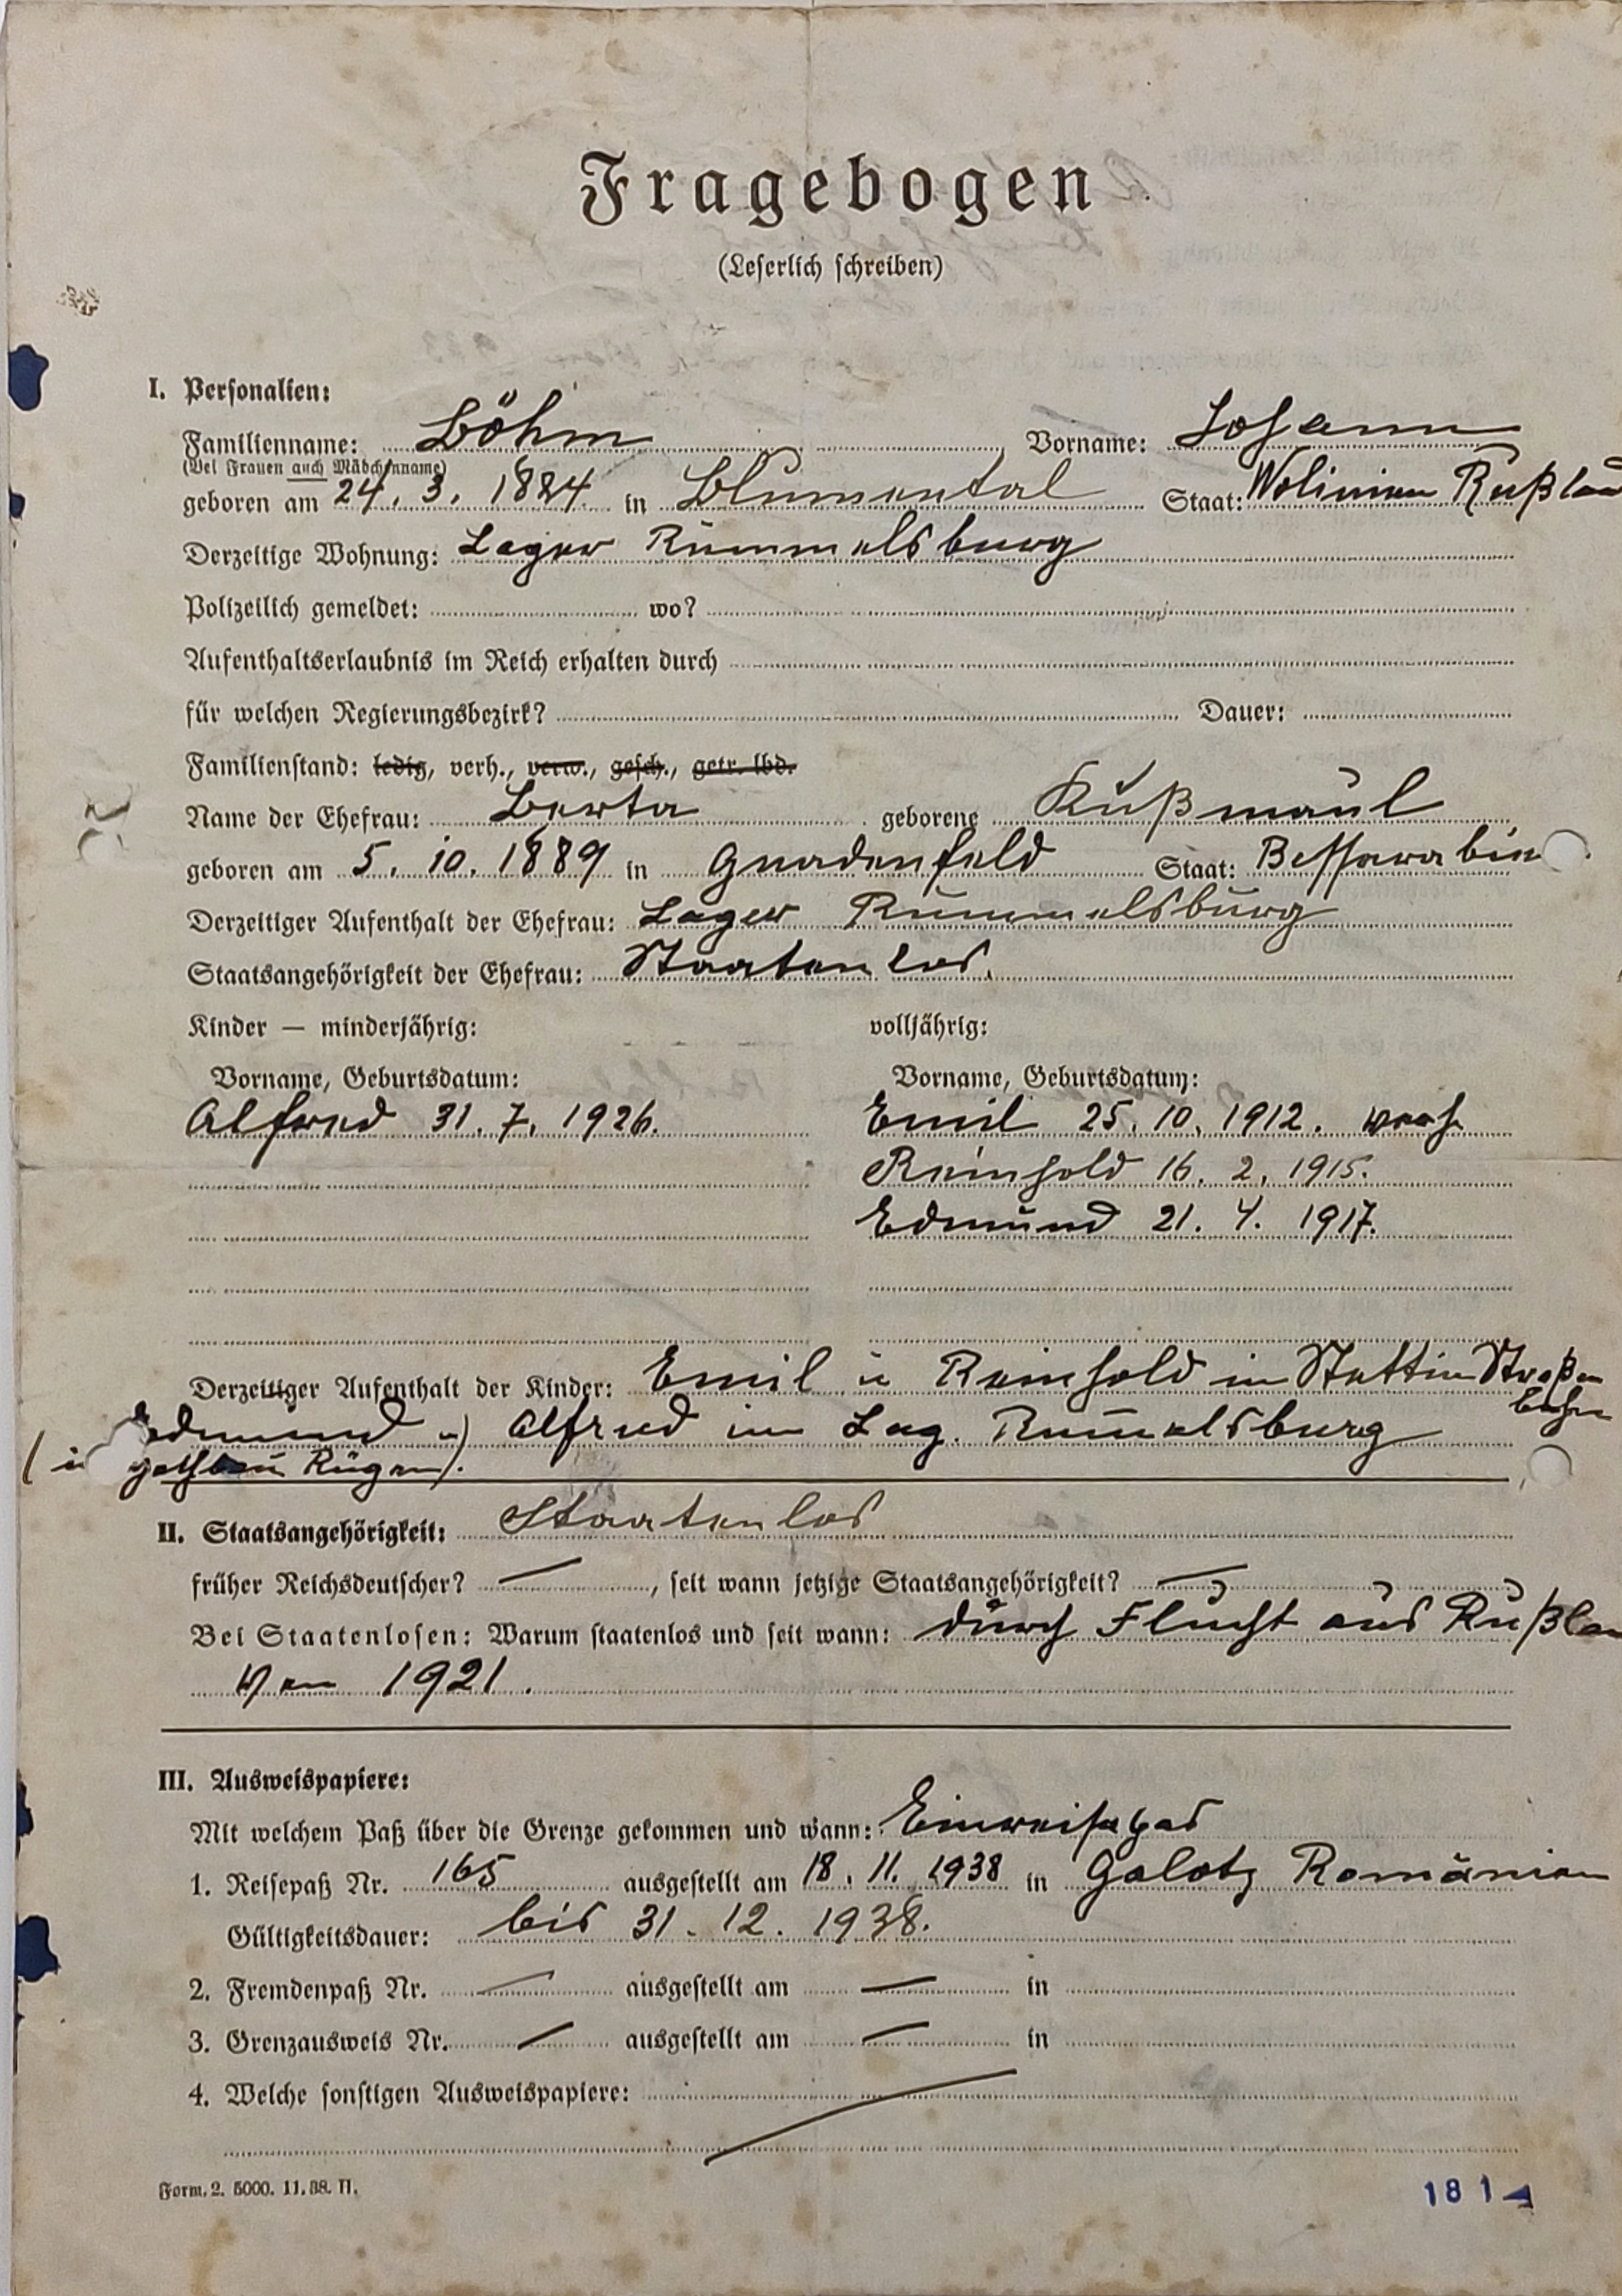 Fragebogen
(Leserlich schreiben)
I. Personalien:
Familienname: Böhm Vorname: Johann
(Bei Frauen auch Mädchenname)
geboren am 24. 3. 1884 in Blumental Staat: Wolinien Rußlan
Derzeitige Wohnung: Lager Rummelsburg
Polizeilich gemeldet: wo?
Aufenthaltserlaubnis im Reich erhalten durch
für welchen Regierungsbezirk? Dauer:
Familienstand: ledig, verh., verw., gesch., getr. lbd.
Name der Ehefrau: Berta geborene Kußmaul
geboren am 5. 10. 1889 in Gnadenfeld Staat: Bessarabien
Derzeitiger Aufenthalt der Ehefrau: Lager Rummelsburg
Staatsangehörigkeit der Ehefrau: Staatenlos.
Kinder — minderjährig: volljährig:
Vorname, Geburtsdatum: Vorname, Geburtsdatum:
Alfred 31. 7. 1926. Emil 25. 10. 1912. verh.
Reinhold 16. 2. 1915.
Edmund 21. 4. 1917.
Derzeitiger Aufenthalt der Kinder: Emil u Reinhold in Stettin Straßen
bahn
Edmund u) Alfred im Lag. Rum̄elsburg
Rügen).
II. Staatsangehörigkeit: Staatenlos
früher Reichsdeutscher? — , seit wann jetzige Staatsangehörigkeit? —
Bei Staatenlosen: Warum staatenlos und seit wann: durch Flucht aus Rußlan
1921.
III. Ausweispapiere:
Mit welchem Paß über die Grenze gekommen und wann: Einreisepas
1. Reisepaß Nr. 165 ausgestellt am 18. 11. 1938 in Galatz Romänien
Gültigkeitsdauer: bis 31. 12. 1938.
2. Fremdenpaß Nr. — ausgestellt am — in
3. Grenzausweis Nr. — ausgestellt am — in
4. Welche sonstigen Ausweispapiere:
Form. 2. 5000. 11. 38. H.
181